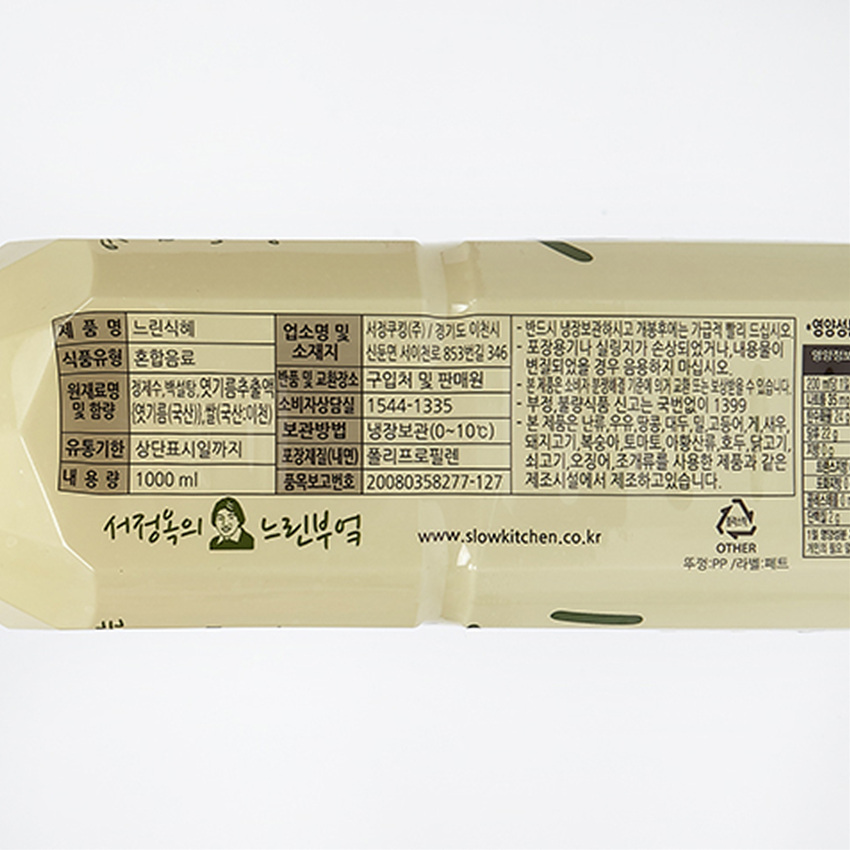 제 품 명 느린식혜
식품유형 혼합음료
원재료명 및 함량 정제수,백설탕,엿기름추출액
{엿기름(국산)},쌀(국산:이천)
유통기한 상단표시일까지
내 용 량 1000 ml
업소명 및 소재지 서정쿠킹(주) / 경기도 이천시
신둔면 서이천로 853번길 346
반품 및 교환장소 구입처 및 판매원
소비자상담실 1544-1335
보관방법 냉장보관(0~10℃)
포장재질(내면) 폴리프로필렌
품목보고번호 20080358277-127
- 반드시 냉장보관하시고 개봉후에는 가급적 빨리 드십시오.
- 포장용기나 실링지가 손상되었거나,내용물이
변질되었을 경우 음용하지 마십시오.
- 본 제품은 소비자 분쟁해결 기준에 의거 교환 또는 보상받을 수 있습니다.
- 부정,불량식품 신고는 국번없이 1399
- 본 제품은 난류,우유,땅콩,대두,밀,고등어,게,새우,
돼지고기,복숭아,토마토,아황산류,호두,닭고기,
쇠고기,오징어,조개류를 사용한 제품과 같은
제조시설에서 제조하고있습니다.
서정옥의 느린부엌
www.slowkitchen.co.kr
플라스틱
OTHER
뚜껑:PP /라벨:페트
•영양성분
영양정보
200 ml당